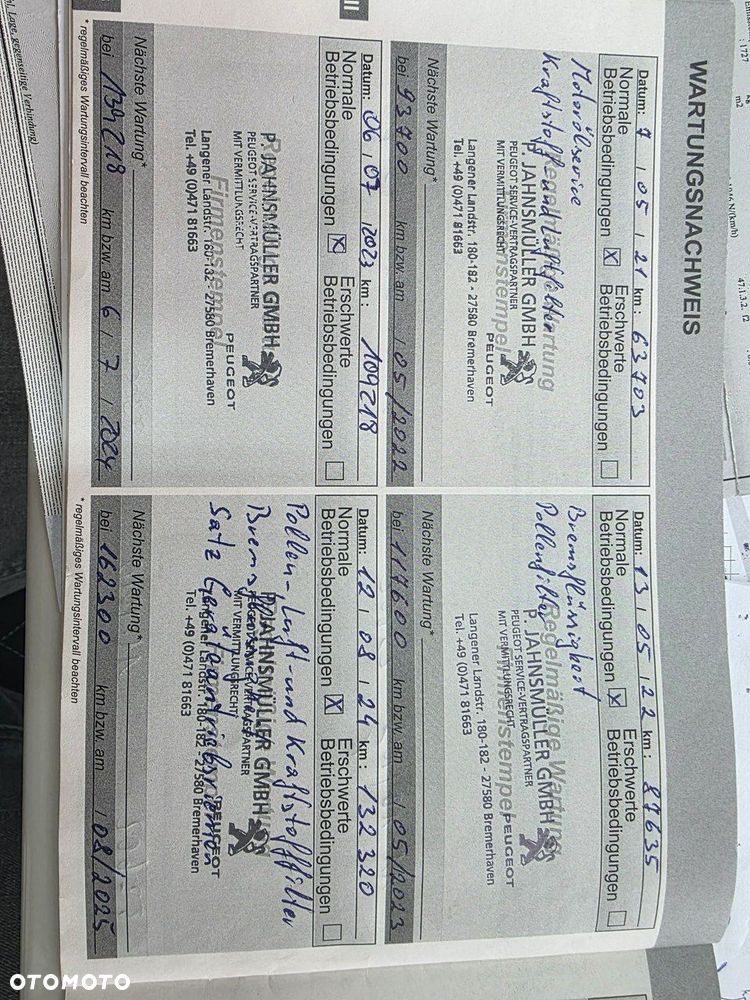 WARTUNGSNACHWEIS
Datum: 7 / 05 / 21 km: 63703
Normale Betriebsbedingungen ☒ Erschwerte Betriebsbedingungen ☐
Motorölservice
Kraftstoff und Luftfilter
Regelmäßige Wartung
Firmenstempel
P. JAHNSMÜLLER GMBH
PEUGEOT SERVICE-VERTRAGSPARTNER
MIT VERMITTLUNGSRECHT
PEUGEOT
Langener Landstr. 180-182 - 27580 Bremerhaven
Tel. +49 (0)471 81663
Nächste Wartung*
bei 93700 km bzw. am / 05/2022
Datum: 13 / 05 / 22 km: 87635
Normale Betriebsbedingungen ☒ Erschwerte Betriebsbedingungen ☐
Bremsflüssigkeit
Pollenfilter
Regelmäßige Wartung
Firmenstempel
P. JAHNSMÜLLER GMBH
PEUGEOT SERVICE-VERTRAGSPARTNER
MIT VERMITTLUNGSRECHT
PEUGEOT
Langener Landstr. 180-182 - 27580 Bremerhaven
Tel. +49 (0)471 81663
Nächste Wartung*
bei 117600 km bzw. am / 05/2023
Datum: 06 / 07 / 2023 km: 109218
Normale Betriebsbedingungen ☒ Erschwerte Betriebsbedingungen ☐
Firmenstempel
P. JAHNSMÜLLER GMBH
PEUGEOT SERVICE-VERTRAGSPARTNER
MIT VERMITTLUNGSRECHT
PEUGEOT
Langener Landstr. 180-182 - 27580 Bremerhaven
Tel. +49 (0)471 81663
Nächste Wartung*
bei 139218 km bzw. am 6 / 7 / 2024
* regelmäßiges Wartungsintervall beachten
Datum: 12 / 08 / 24 km: 132320
Normale Betriebsbedingungen ☒ Erschwerte Betriebsbedingungen ☐
Pollen-, Luft- und Kraftstofffilter
Bremsflüssigkeit
Satz
P. JAHNSMÜLLER GMBH
PEUGEOT SERVICE-VERTRAGSPARTNER
MIT VERMITTLUNGSRECHT
PEUGEOT
Langener Landstr. 180-182 - 27580 Bremerhaven
Tel. +49 (0)471 81663
Nächste Wartung*
bei 162300 km bzw. am / 08/2025
* regelmäßiges Wartungsintervall beachten
II
Lage, gegenseitige Verbindung)
: 1727
m2
47.1.3.2.
OTOMOTO